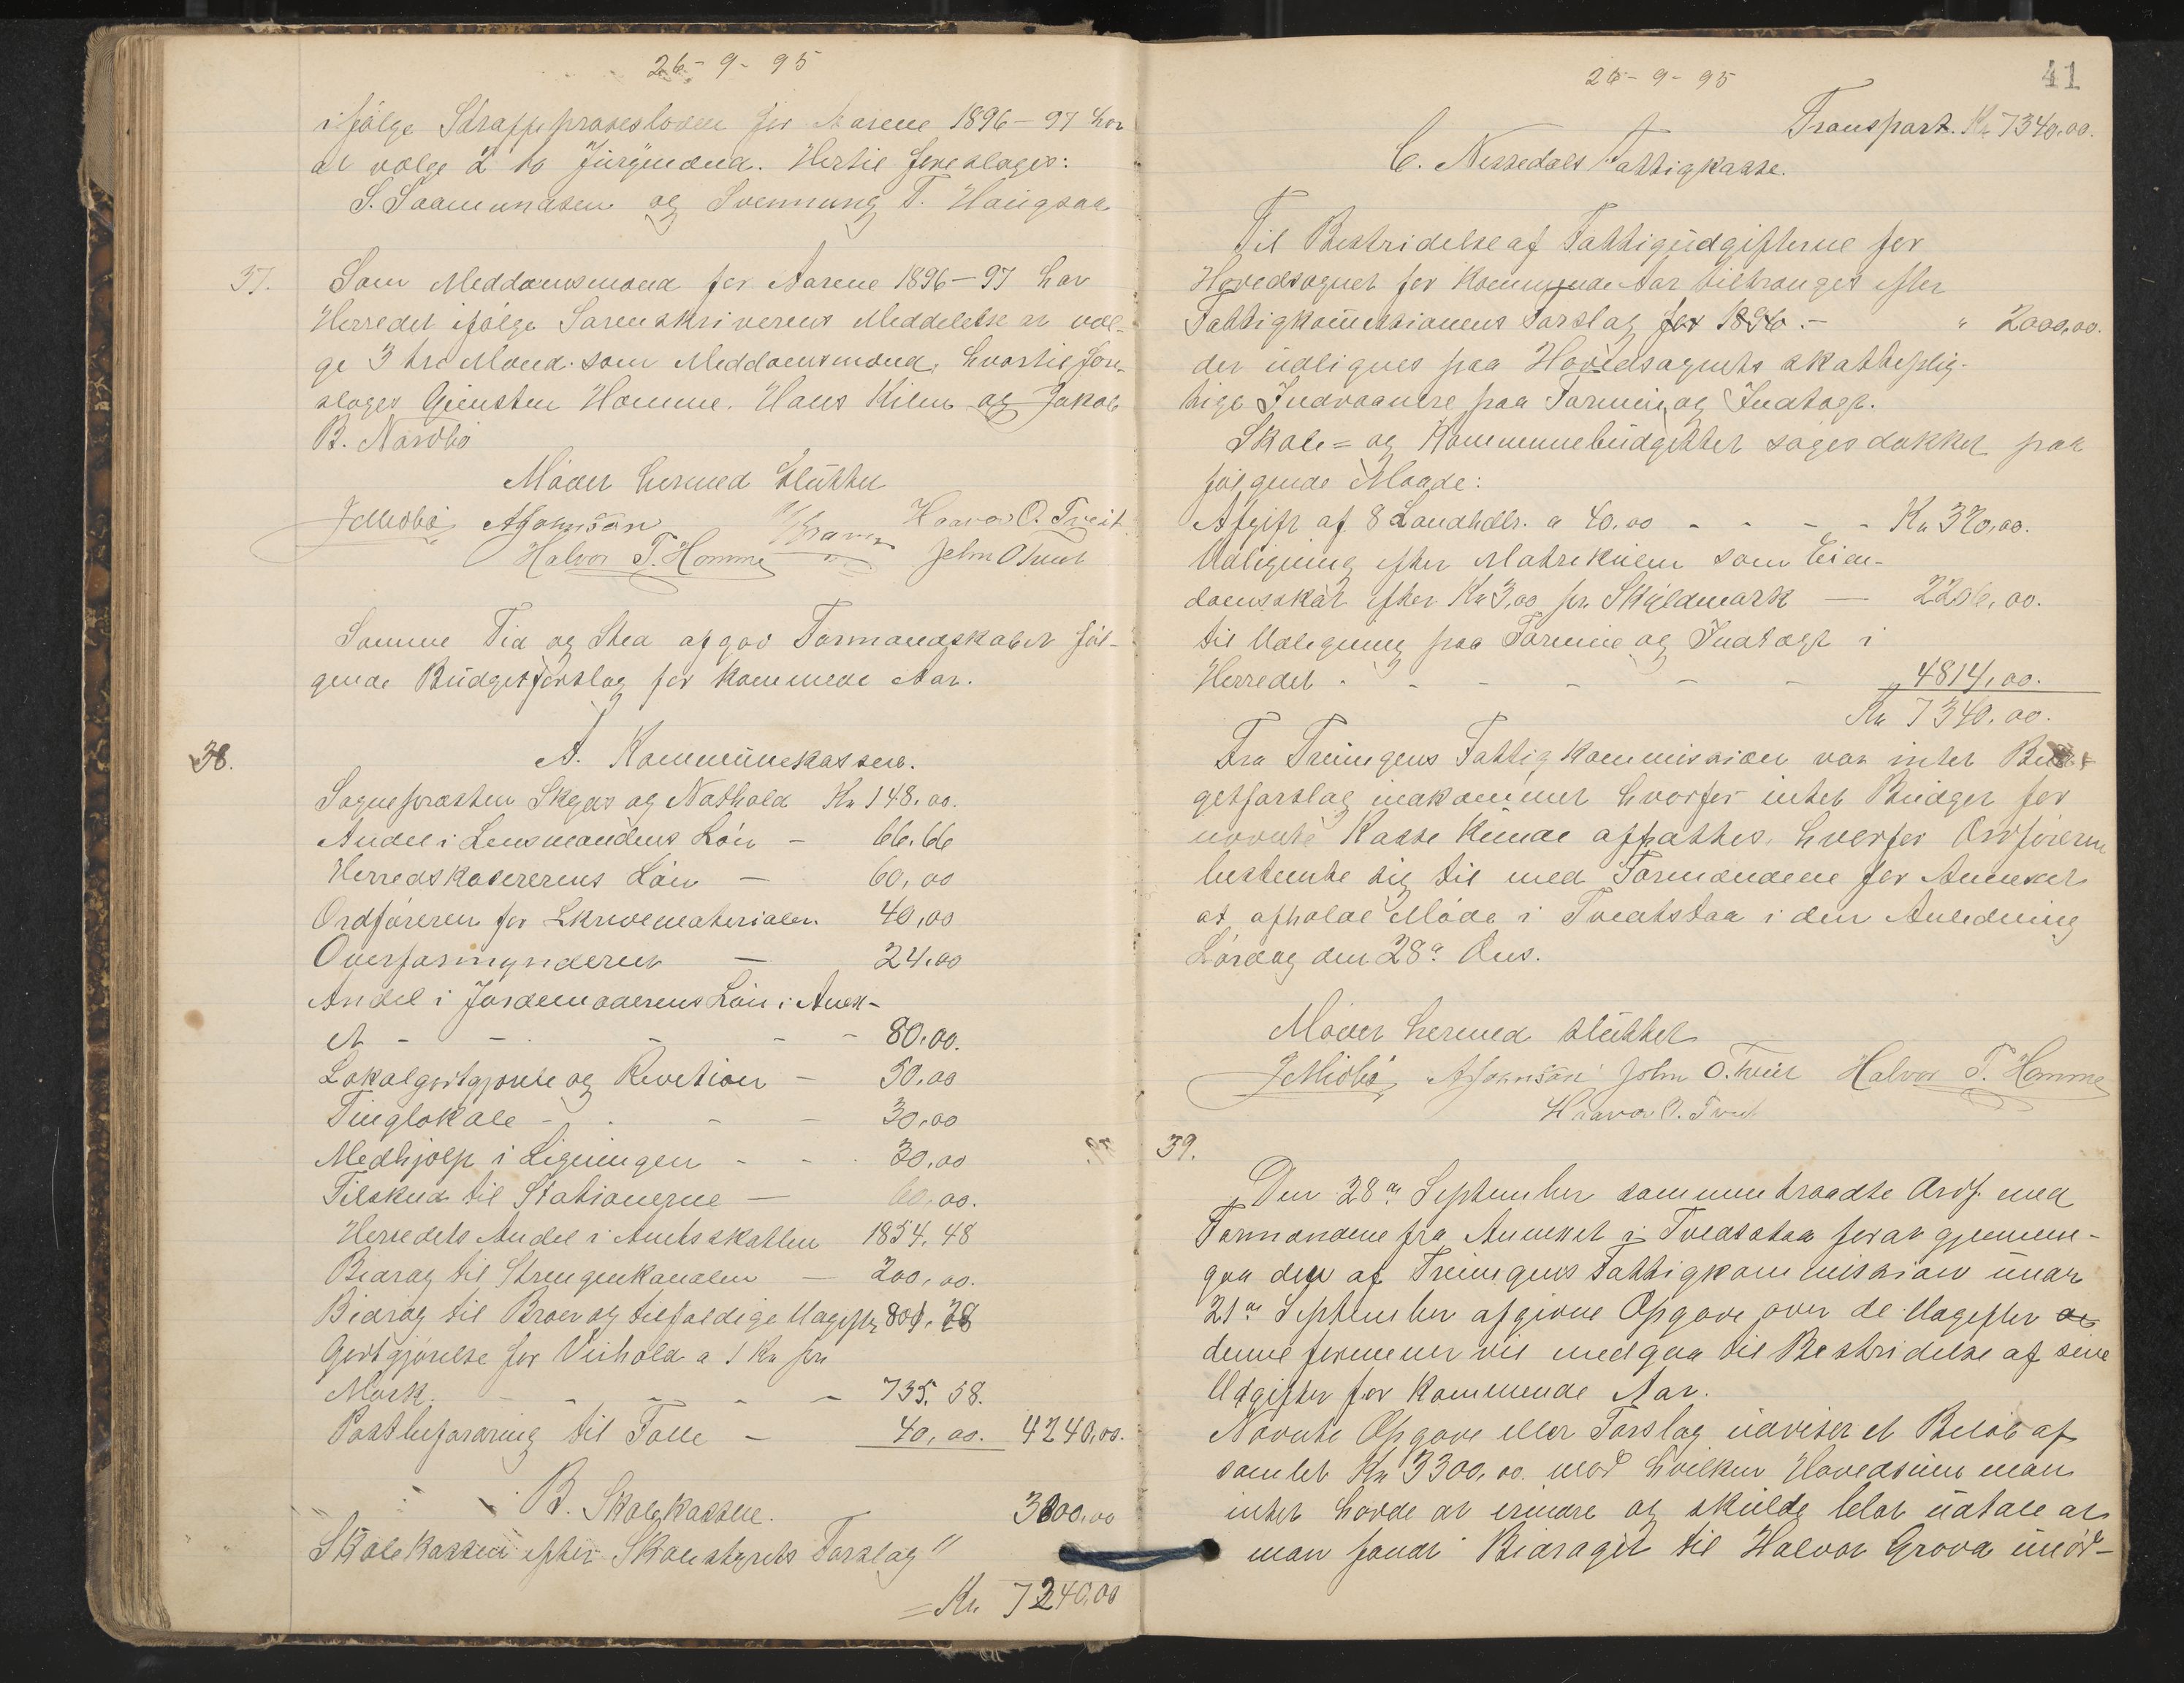 26-9-95
ifølge Straffeproces­loven for Aarene 1896-97 har
at vælge 2 to Jurymænd. Hertil foreslages:
S. Saamundsen og Svennung T. Haugsaa
37.
Som Meddomsmænd for Aarene 1896-97 har
Herredet ifølge Sorenskriverens Meddelelse at væl-
ge 3 tre Mænd som Meddomsmænd, hvortil fore-
slages Gunsten Homme, Hans Kilen og Jakob
B. Nordbø
Mødet hermed sluttet
J Midbø AJohnsøn Haavor O. Tveit
Halvor T. Homme John O Tveit
Samme Tid og Sted afgav Formandskabet føl-
gende Budgetforslag for kommende Aar.
38.
A. Kommunekassen.
Sognepræsten Skyds og Nathold Kr 148,00.
Andel i Lensmandens Løn - 66,66
Herredskasererens Løn - 60,00
Ordføreren for Skrivematerialer. 40,00
Overformynderiet - 24,00
Andel i Jordemoderens Løn i Anex-
et - - - - - 80,00.
Lokalgodtgjørelse og Revetion - 50,00
Tinglokale - - - - 30,00
Medhjælp i Ligningen - - - 30,00
Tilskud til Stationerne - 60,00.
Herredets Andel i Amtsskatten 1854,48
Bidrag til Strengenkanalen - 200,00.
Bidrag til Broer og tilfældige Udgifter 801,28
Godtgjørelse for Veihold a 1 Kr pr
Mark. - - - - - 735.58.
Postbefordring til Folle - 40,00. 4240,00.
B. Skolekassen. 3100,00
Skolekassen efter Skolestyrets Forslag "
= Kr 7340,00
26-9-95
41
Transport. Kr 7340,00.
C. Nissedals Fattigkasse.
Til Bestridelse af Fattigudgifterne for
Hovedsognet for kommende Aar tiltrænges efter
Fattigkommissionens Forslag for 1896.- " 2000,00.
der udlignes paa Hovedsognets skatteplig-
tige Indvaanere paa Formue og Indtægt.
Skole= og Kommunebudgettet søges dækket paa
følgende Maade:
Afgift af 8 Landhdlr. a 40,00 - - - - Kr 320,00.
Udligning efter Matrekulen som Eien-
domsskat efter Kr 3,00 pr Skyldmark - 2206,00.
til Udligning paa Formue og Indtægt i
Herredet - - - - - - " 4814,00.
Kr 7340,00.
Fra Treungens Fattigkommission var intet Bud-
getforslag indkommet hvorfor intet Budget for
nævnte Kasse kunde affattes, hvorfor Ordføreren
bestemte sig til med Formændene for Annexet
at afholde Møde i Tveitstaa i den Anledning
Lørdag den 28de Ds.
Mødet hermed sluttet
J Midbø AJohnsøn John O. Tveit Halvor T. Homme
Haavor O. Tveit
39.
Den 28de September sammentraadte Ordf. med
Formændene fra Annexet i Tveitstaa for at gjennem-
gaa den af Treungens Fattigkommission under
21de September afgivne Opgave over de Udgifter de
denne formener vil medgaa til Bestridelse af sine
Udgifter for kommende Aar.
Nævnte Opgave eller Forslag udviser et Beløb af
samlet Kr 3300,00 mod hvilken Hovedsum man
intet havde at erindre og skulde blot udtale at
man fandt Bidraget til Halvor Grova unød-